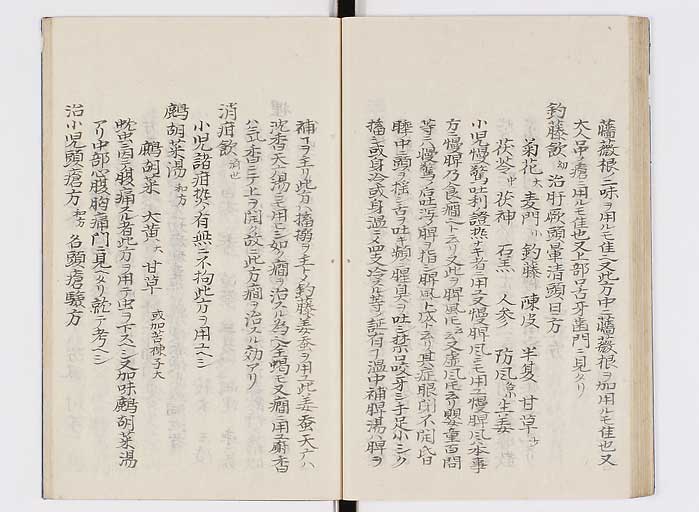 薔薇根一味ヲ用ルモ佳也又此方中ニ薔薇根ヲ加用ルモ佳也又
大人吊ノ瘡ニ用ルモ佳也又上部口舌牙歯門ニ見タリ
釣藤飲 治肝厥頭暈清頭目方
菊花大 麦門 釣藤 陳皮 半夏 甘草
茯苓中 茯神 石羔 人参 防風 生姜
小児慢驚吐利證ニ用ユ又慢脾風ニモ用ユ慢脾風本事
方ニ慢脾乃食癇ト云リ又此ヲ脾風トモ云又虚風トモ云リ嬰童百問
等ニハ慢驚ノ后吐瀉ノ脾ヲ指シ脾風ト成ト云リ其症眼閉不開
睡中ニ頭ヲ揺シ舌ヲ吐キ頻ニ腥臭ヲ吐シ禁口咬牙シ手足小シク
搐シ或身冷或身温ニ〆四支冷ユル等ノ証有フ温中補脾湯ハ脾ヲ
補フヲ主リ此方ハ搐搦ヲ主トメ釣藤姜蚕ヲ用ユ此姜蚕天广ハ
沈香天广湯ニモ用モシ如ク癇ヲ治スル為ニ全蝎モ又癇ニ用ユ麝香
ハ気ヲ開ク故ニ此方癇ヲ治スルノ効アリ
消疳飲 済世
小児諸疳熱ノ有無ニ不拘此方ヲ用ユヘシ
鷓胡菜湯 和方
鷓胡菜 大黄大 甘草 或加苦楝子大
蚘虫ニ因テ腹痛スル者此方ヲ用テ虫ヲ下スヘシ又加味鷓胡菜湯
アリ中部心腹胸痛門ニ見タリ就テ考ヘシ
治小児頭瘡方 和方 名頭瘡験方